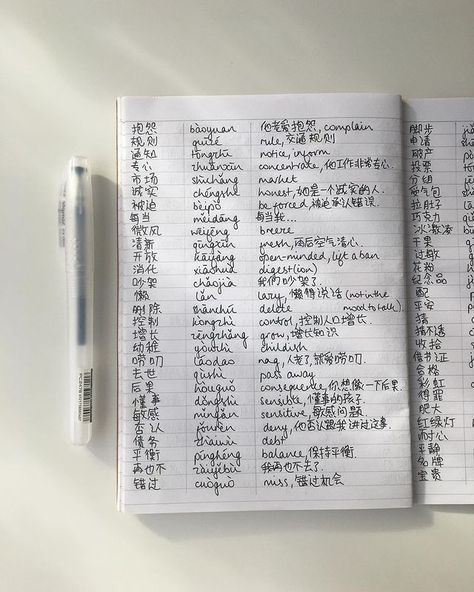 抱怨 bàoyuan 他老爱抱怨, complain
规则 guīzé rule, 交通规则
通知 tōngzhī notice, inform
专心 zhuānxīn concentrate, 他工作非常专心.
市场 shìchǎng market
诚实 chéngshí honest, 她是一个诚实的人.
被迫 bèipò be forced, 被迫承认错误
每当 měidāng 每当我...
微风 wēifēng breeze
清新 qīngxīn fresh, 雨后空气清心.
开放 kāifàng open-minded, lift a ban
消化 xiāohuà digest(ion)
吵架 chǎojià 我们吵架了.
懒 lǎn lazy, 懒得说话 (not in the mood to talk).
删除 shānchú delete
控制 kòngzhì control, 控制人口增长
增长 zēngzhǎng grow, 增长知识
幼稚 yòuzhì childish
唠叨 láodao nag, 人老了就爱唠叨.
去世 qùshì pass away
后果 hòuguǒ consequence, 你想像一下后果
懂事 dǒngshì sensible, 懂事的孩子.
敏感 mǐngǎn sensitive, 敏感问题
否认 fǒurèn deny, 他否认跟我讲过这事.
债务 zhàiwù debt
平衡 pínghéng balance, 保持平衡
再也不 zàiyěbù 我再也不去了.
错过 cuòguò miss, 错过机会
脚步
申请
破产
投票
分组
受气包
拉肚子
巧克力
冰激凌
干果
过敏
花粉
纪念品
配
平安
猜
猜不透
收拾
借书证
合格
彩虹
得罪
肥大
红绿灯
耐心
平静
名牌
宝贵